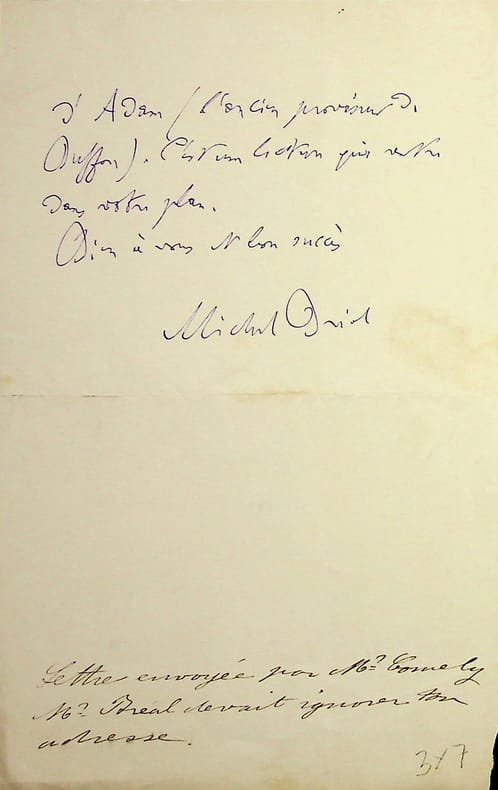 d'Adam (l'ancien proviseur de
Buffon). C'est une lecture qui rentre
dans votre plan.
Bien à vous et bon succès
Michel Bréal
Lettre envoyée par Mr. Comely
Mr. Bréal devait ignorer
adresse.
347